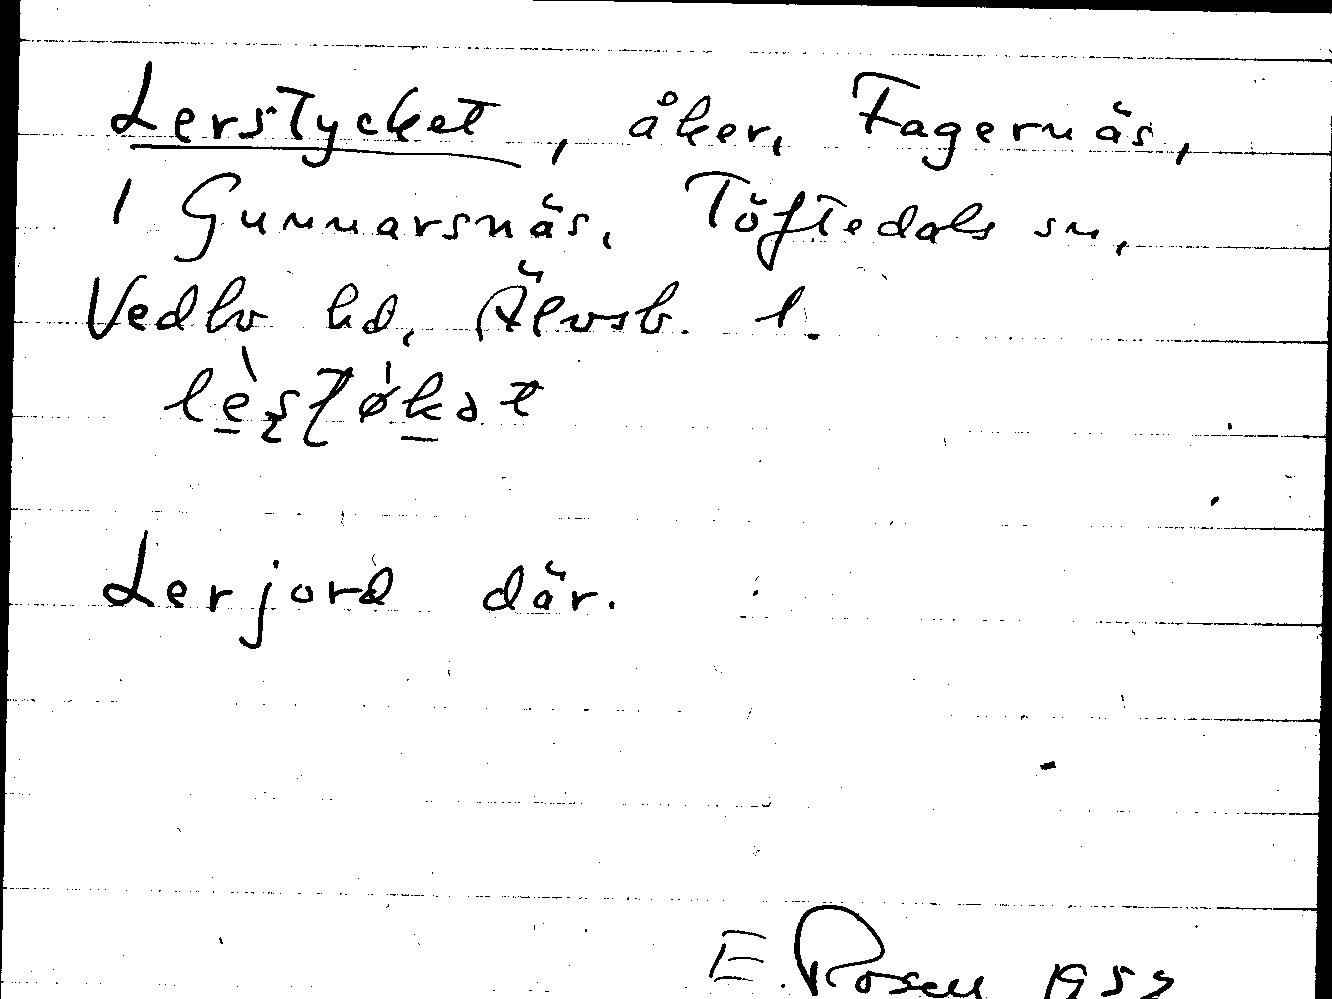 Lerstycket, åker, Fagernäs,
1 Gunnarsnäs, Töftedals sn,
Vedbo hd, Älvsb. l.
Lerjord där.
E. Rosen